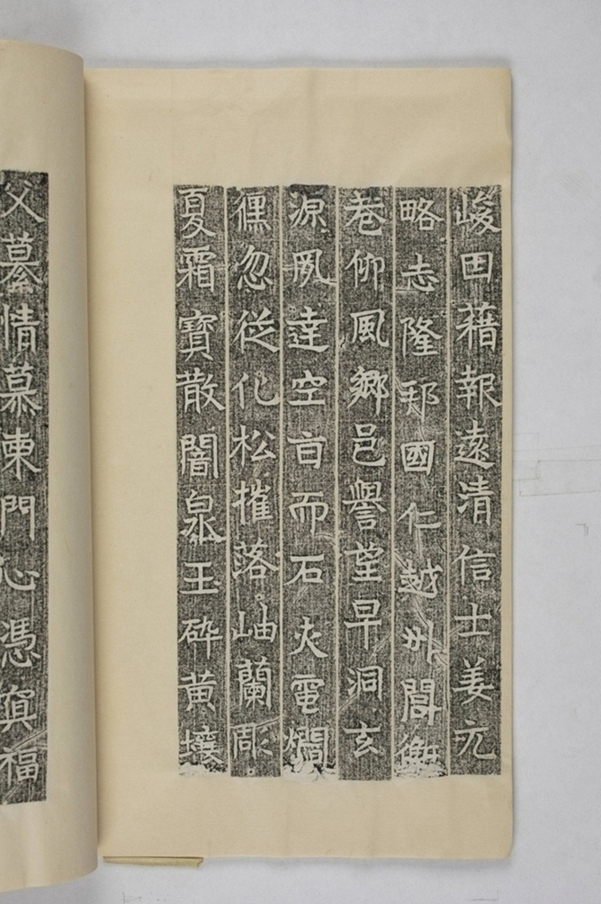 峻因藉報遠清信士姜元
略志隆邦國仁越州閭衡
巷仰風鄉邑譽望早洞玄
源夙達空旨而石火電爓
儵忽從化松摧落岫蘭彫
夏霜寶散闇泉玉碎黃壤
父情慕東門心憑冥福